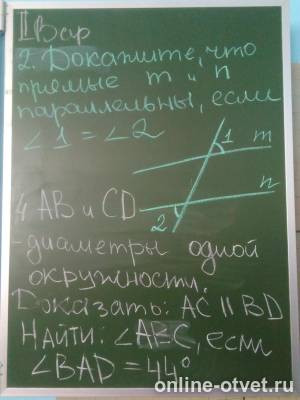 II Вар
2. Докажите, что
прямые m и n
параллельны, если
∠1 = ∠2
1 m
n
2
4 AB и CD
- диаметры одной
окружности.
Доказать: AC || BD
Найти: ∠ABC, если
∠BAD = 44°
online-otvet.ru